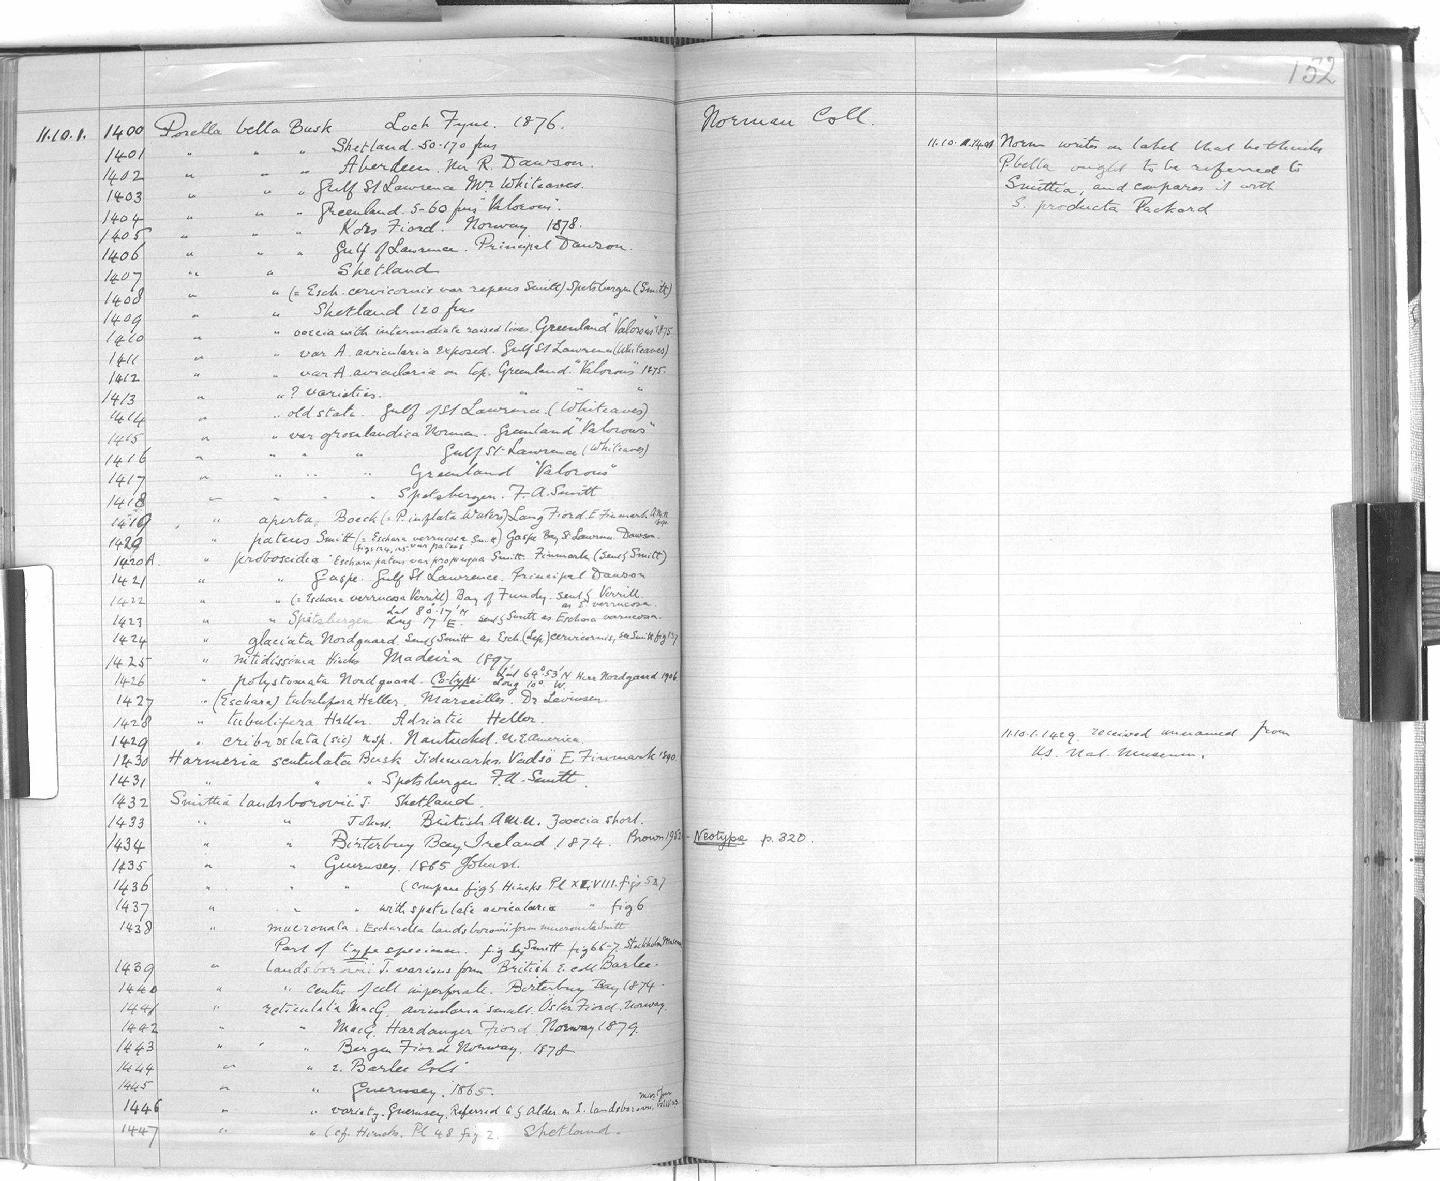 152
11.10.1. 1400 Porella bella Busk Loch Fyne. 1876. Norman Coll.
1401 " " " Shetland 50-170 fms
11.10.1.1401 Norm writes on label that he thinks
P. bella ought to be referred to
Smittia, and compares it with
S. producta Packard
1402 " " " Aberdeen. Mr R. Dawson.
1403 " " " Gulf St Lawrence Mr Whiteaves.
1404 " " " Greenland. 5-60 fms "Valorous".
1405 " " " Kors Fiord. Norway 1878.
1406 " " " Gulf of Lawrence. Principal Dawson.
1407 " " Shetland
1408 " " (= Esch. cervicornis var repens Smitt) Spetsbergen (Smitt)
1409 " " Shetland 120 fms
1410 " " ooecia with intermediate raised lines. Greenland "Valorous" 1875
1411 " " var A. avicularia exposed. Gulf St Lawrence (Whiteaves)
1412 " " var A. avicularia on top. Greenland. "Valorous" 1875.
1413 " " ? varieties. " "
1414 " " old state. Gulf of St Lawrence. (Whiteaves)
1415 " " var groenlandica Norman. Greenland "Valorous"
1416 " " " " Gulf St Lawrence (Whiteaves)
1417 " " " " Greenland "Valorous"
1418 " " " " Spetsbergen. F. A. Smitt
1419 " " aperta, Boeck (= P. inflata Waters) Lang Fiord. E. Finmark A.M.N.
1420 " patens Smitt (= Eschara verrucosa Smitt) Gaspe Bay St Lawrence Dawson.
1420A. " proboscidia "Eschara patens var propinqua Smitt. Finmark (Smitt)
1421 " " Gaspe. Gulf St Lawrence. Principal Dawson
1422 " " (= Eschara verrucosa Verrill) Bay of Fundy. sent by Verrill
as E. verrucosa.
1423 " " Spetsbergen Lat 80°.17' N Long 17° E. sent by Smitt as Eschara verrucosa.
1424 " glaciata Nordgaard Sent by Smitt as Esch. (Lep) cervicornis, see Smitt fig 137
1425 " nitidissima Hincks Madeira 1897
1426 " polystomata Nordgaard. Co-type. Lat 69°.53' N Long 10° W. Herr Nordgaard 1906
1427 " (Eschara) tubulifera Heller. Marseilles. Dr Levinsen.
1428 " tubulifera Heller. Adriatic Heller.
1429 " cribrostata (sic) n.sp. Nantucket. N.E. America. 11.10.1.1429 received unnamed from
US. Nat. Museum.
1430 Harmeria scutulata Busk Tidemarks. Vadsö E. Finmark 1890.
1431 " " " Spetsbergen F. A. Smitt.
1432 Smittia landsborovii J. Shetland.
1433 " " Johns. British A.M.N. Zooecia short.
1434 " " Birterbuy Bay, Ireland 1874. Brown 1952 - Neotype p. 320.
1435 " " Guernsey. 1865 Johnst.
1436 " " " (compare fig by Hincks Pl XLVIII. figs
1437 " " " with spatulate avicularia " fig 6
1438 " mucronata. Escharella landsborovii form mucronata Smitt
Part of type specimen. fig by Smitt fig 66-7. Stockholm Museum
1439 " landsborovii J. various form British E. coll Barlee.
1440 " " centre of cell imperforate. Birterbuy Bay 1874.
1441 " reticulata MacG. avicularia small. Oster Fiord. Norway.
1442 " " MacG. Hardanger Fiord Norway 1879.
1443 " " " Bergen Fiord Norway. 1878
1444 " " E. Barlee Coll
1445 " " Guernsey. 1865.
1446 " " variety. Guernsey. Referred to by Alder as L. landsborovii.
1447 " " (cf. Hincks. Pl 48 fig 2. Shetland.